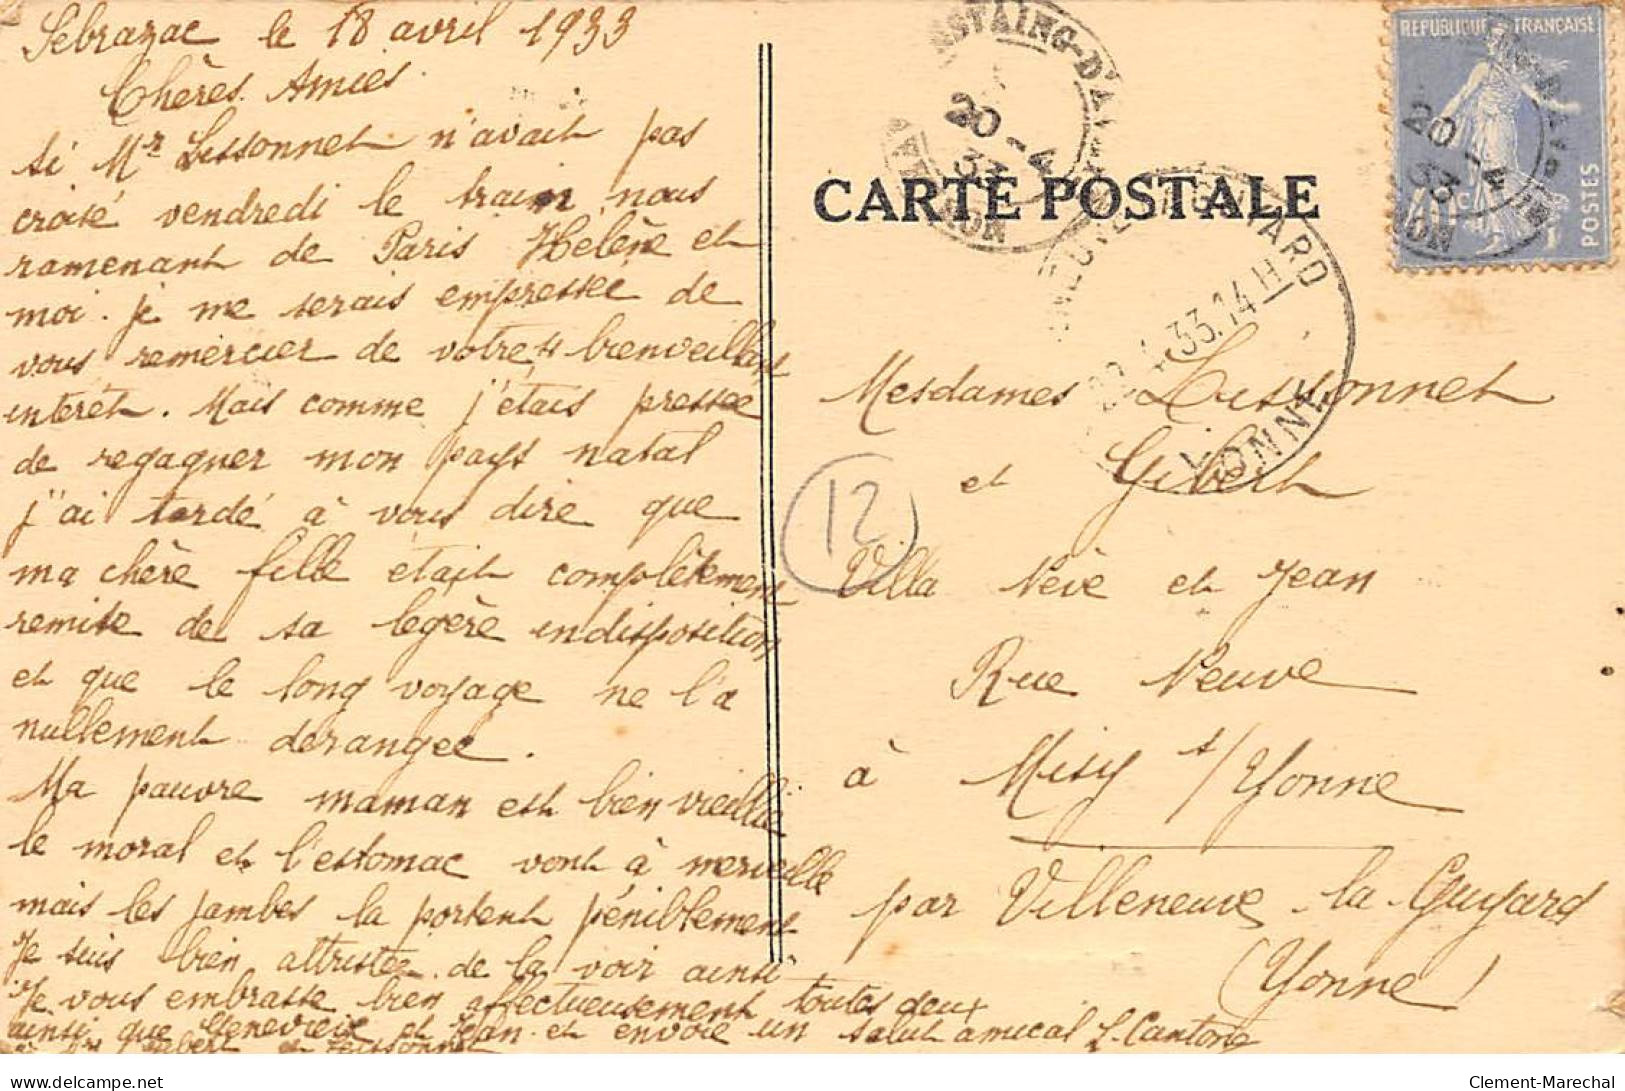 Sébrazac le 18 avril 1933
Chères Amies
si Mr Lissonnet n'avait pas
croisé vendredi le train nous
ramenant de Paris Hélène et
moi. je me serais empressée de
vous remercier de votre bienveillant
intérêt. Mais comme j'étais pressée
de regagner mon pays natal
j'ai tardé à vous dire que
ma chère fille était complètement
remise de sa legère indisposition
et que le long voyage ne l'a
nullement derangée.
Ma pauvre maman est bien vieillie
le moral et l'estomac vont à merveille
mais les jambes la portent péniblement
Je suis bien attristée de la voir ainsi
Je vous embrasse bien affectueusement toutes deux
ainsi que Geneviève et Jean et envoie un salut amical L. Cantony
à Mrs Gibert et Lissonnet
CARTE POSTALE
REPUBLIQUE FRANÇAISE
POSTES
20 -4
33
20 -4
33
AVEYRON
22.4.33.14H
YONNE
12
Mesdames Lissonnet
et Gibert
Villa Nève et Jean
Rue Neuve
à Misy s/Yonne
par Villeneuve-la-Guyard
(Yonne)
www.delcampe.net
Clement-Marechal